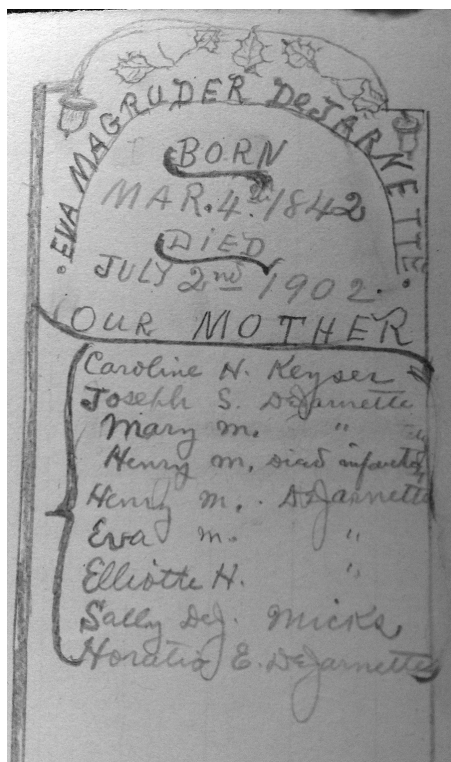 EVA MAGRUDER DeJARNETTE
BORN
MAR. 4th. 1842
DIED
JULY 2nd 1902.
OUR MOTHER
Caroline H. Keyser
Joseph S. DeJarnette
Mary M. " "
Henry M. Died infancy
Henry M. DeJarnette
Eva M. "
Elliotte H. "
Sally DeJ. Micks
Horatio E. DeJarnette